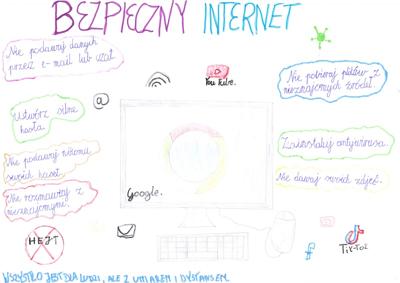 BEZPIECZNY INTERNET
Nie podawaj danych
przez e-mail lub czat.
You Tube.
Nie pobieraj plików z
nieznajomych źródeł.
@
Utwórz silne
hasła.
Zainstaluj antywirusa.
Nie podawaj nikomu
swoich haseł.
Nie dawaj swoich zdjęć.
Google.
Nie rozmawiaj z
nieznajomymi.
HEJT
f
TIK-TOK
WSZYSTKO JEST DLA LUDZI, ALE Z UMIAREM I DYSTANSEM.